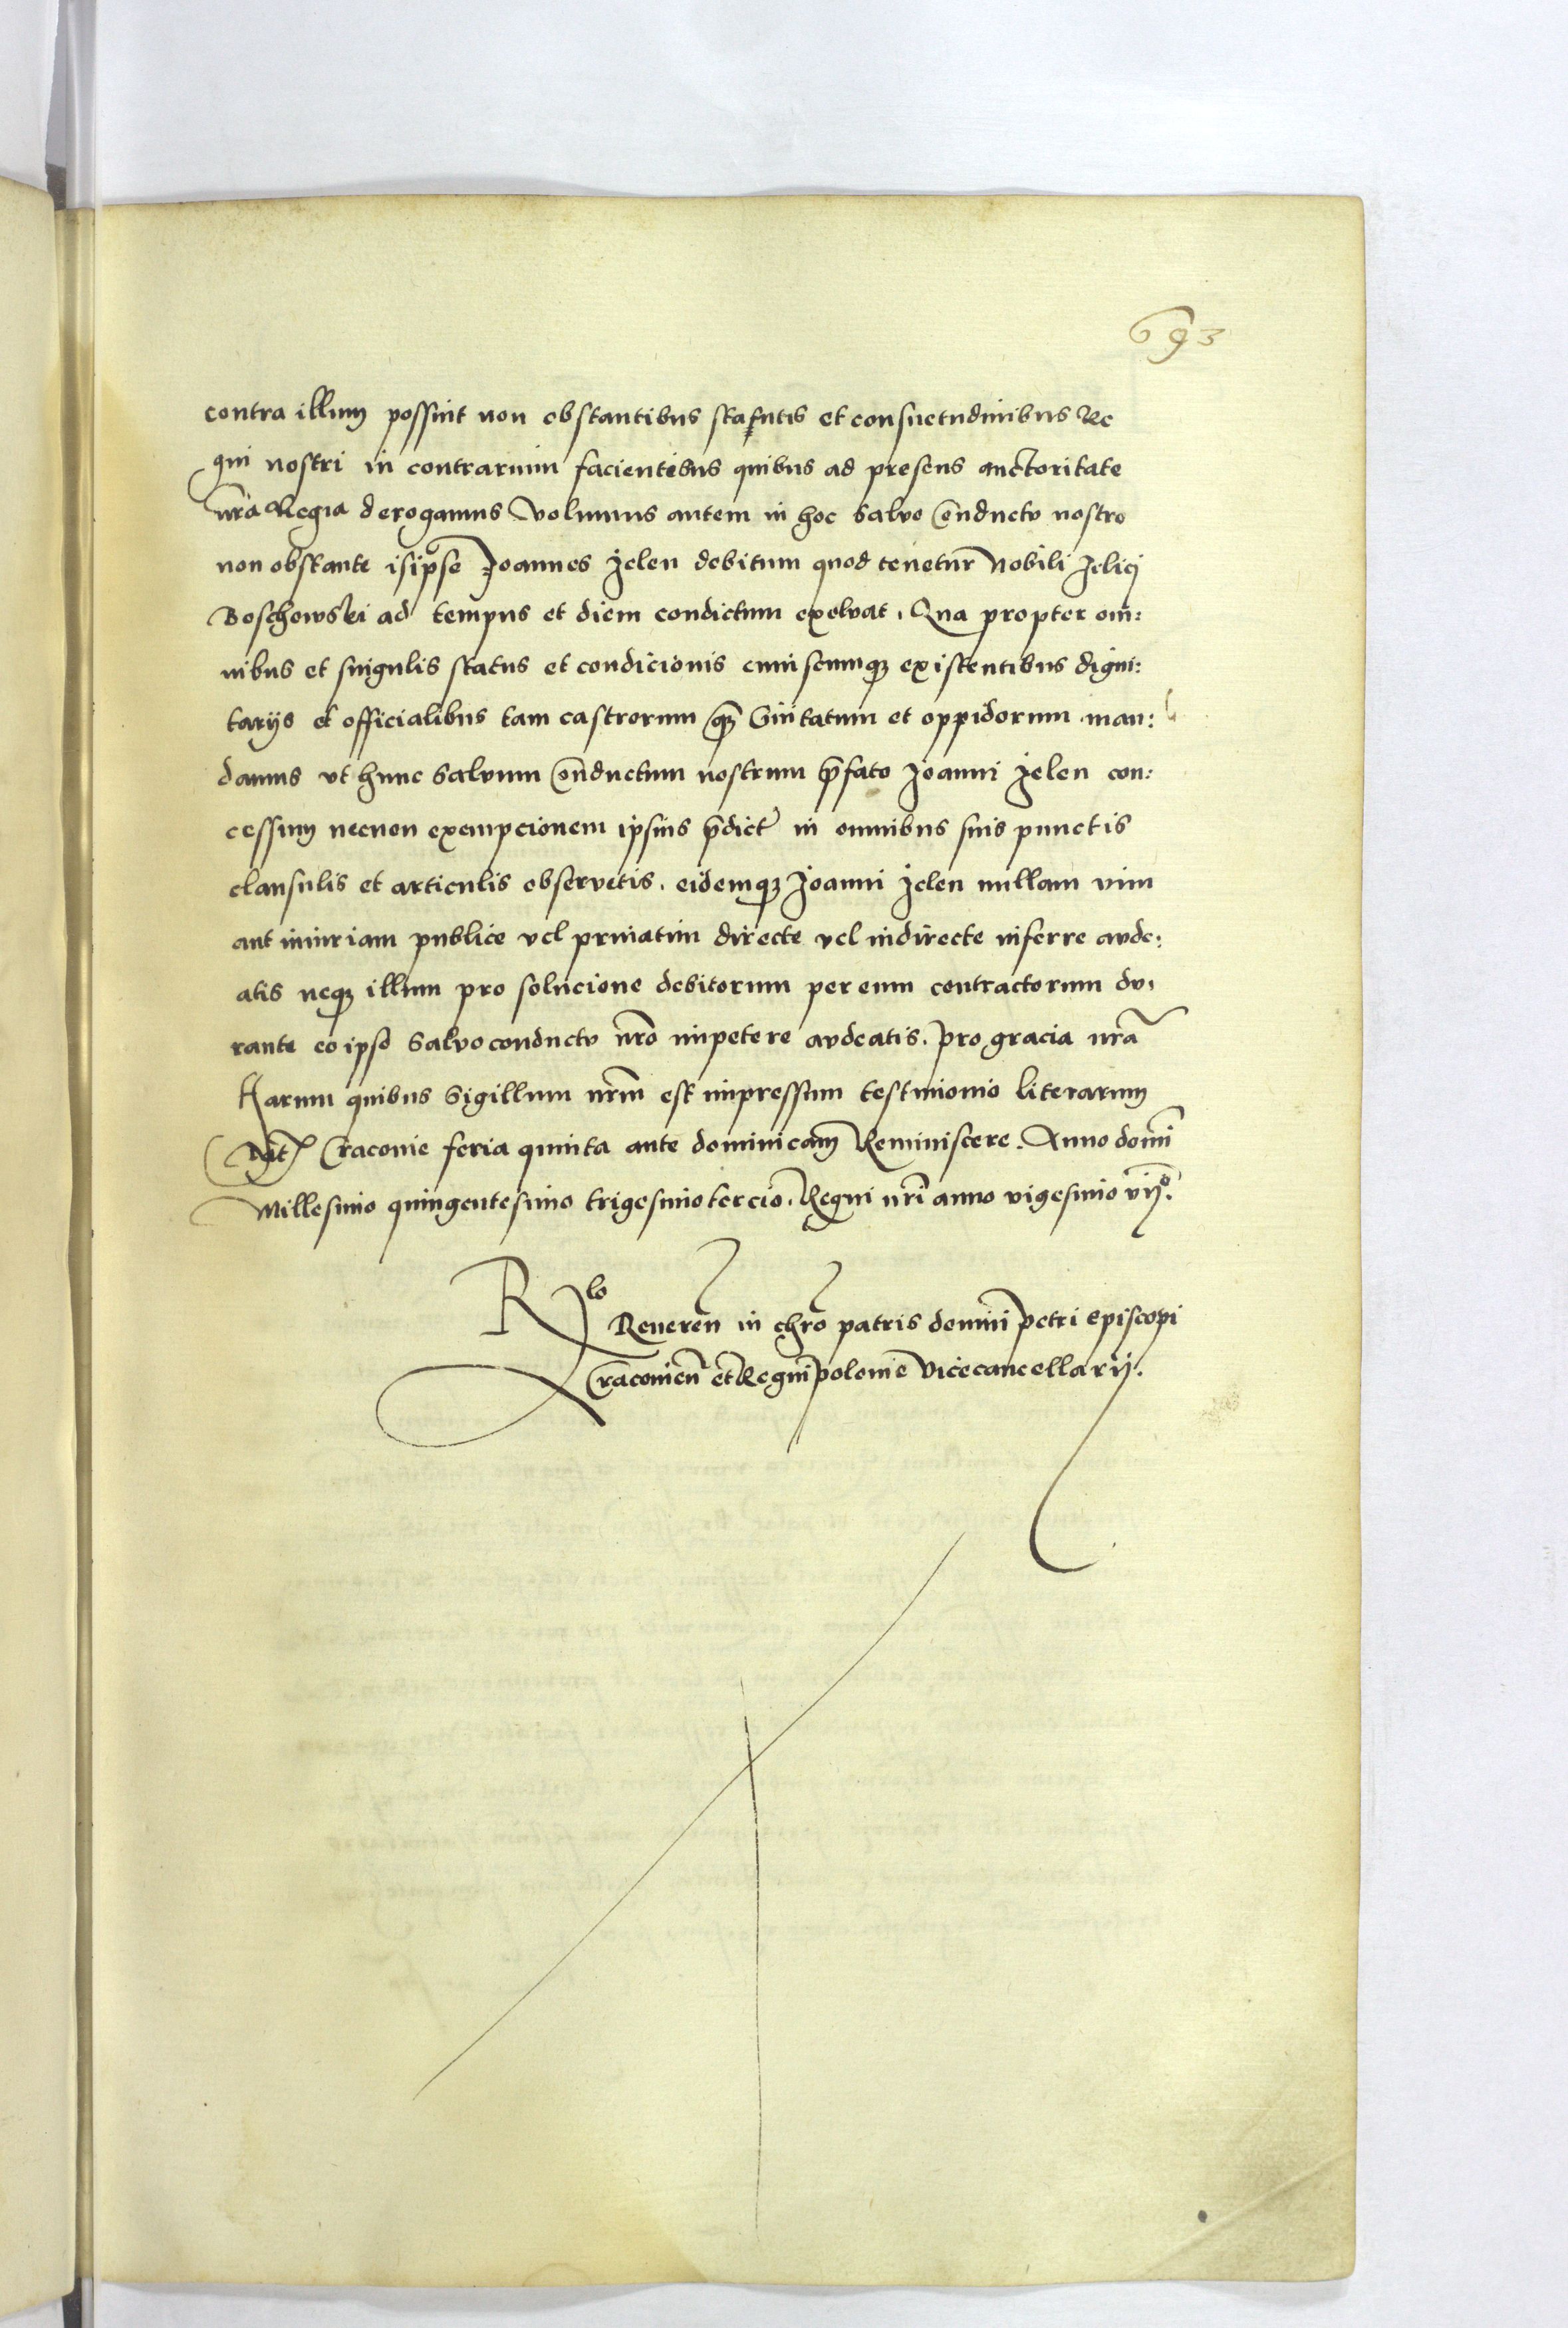 693
contra illum possint non obstantibus statutis et consuetudinibus Re
gni nostri in contrarium facientibus quibus ad presens auctoritate
nr̃a Regia derogamus Volumus autem in hoc Salvo Cõnductv nostro
non obstante is ipse Joannes Jelen debitum quod tenetur Nobili
Boschowski ad tempus et diem condictum exolvat. Qua propter om̃:
nibus et singulis status et condicionis cuiuscumqꝫ existentibus digni:
tarijs et officialibus tam castrorum qꝫ Civitatum et oppidorum man:
damus vt hunc Salvum Cõnductum nostrum p̃fato Joanni Jelen con:
cessum necnon exempcionem ipsius p̃dict in omnibus suis punctis
clausulis et articulis observetis. eidemqꝫ Joanni Jelen nullam vim
aut iniuriam publice vel privatim directe vel indirecte inferre avde:
atis neqꝫ illum pro solucione debitorum per eum contractorum dv.
rante eo ipso Salvoconductv nr̃o impetere avdeatis. pro gracia nr̃a
Harum quibus Sigillum nr̃m est impressum testimonio literarum
Dat Cracovie feria quinta ante dominicam Reminiscere. Anno domĩ
Millesimo quingentesimo trigesimotercio. Regni nr̃i anno vigesimo vijº.
Rlo
Reveren̄ in chr̃o patris dominĩ petri episcopi
Cracovien̄ et Regni polonie Vicecancellarij.